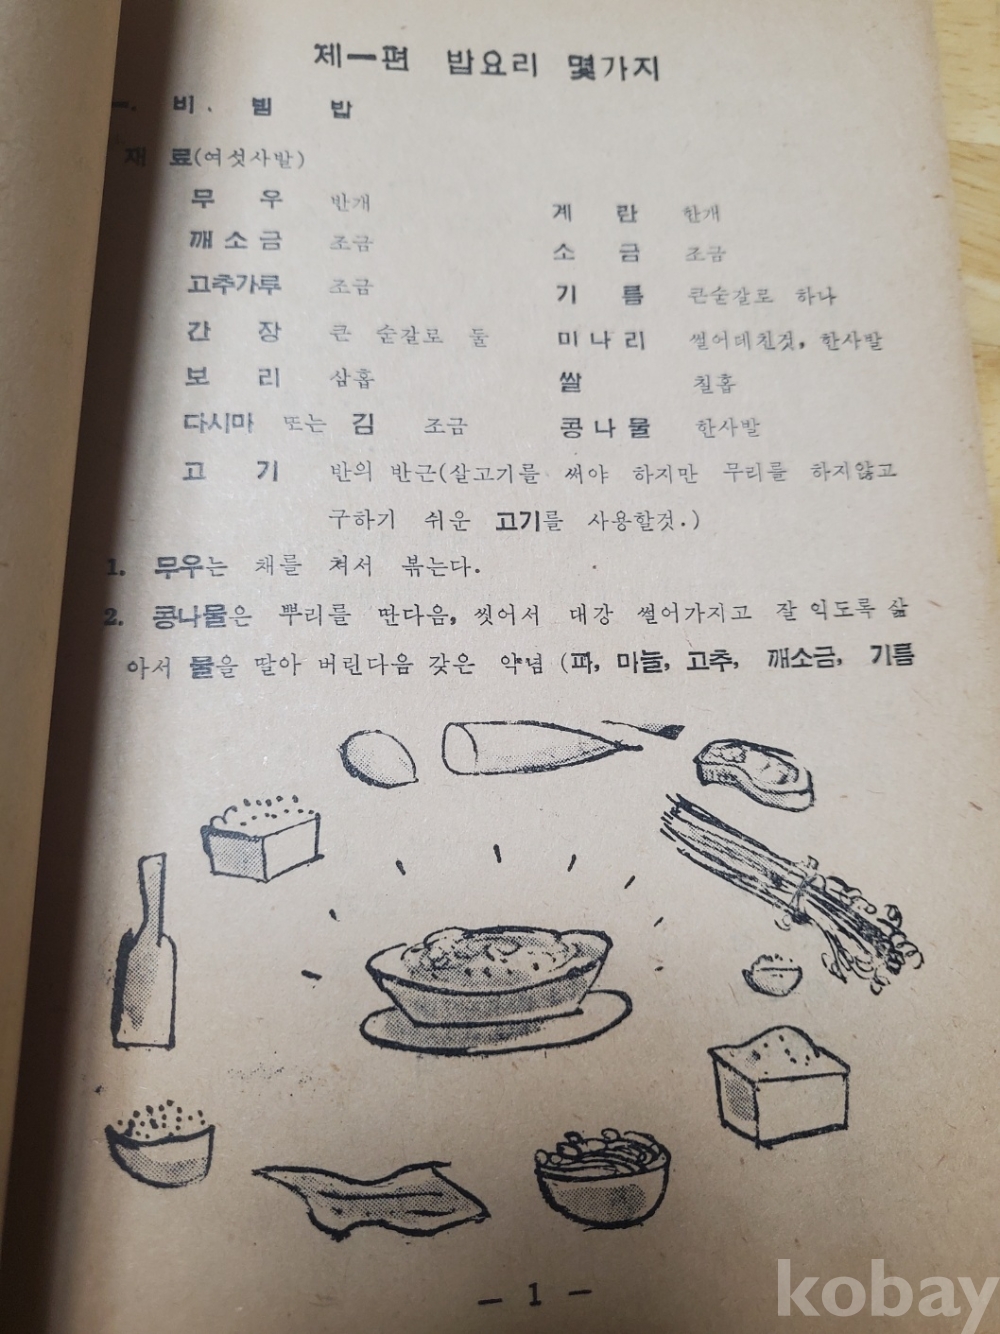 제一편 밥요리 몇가지
一. 비. 빔 밥
재 료(여섯사발)
무 우 반개 계 란 한개
깨소금 조금 소 금 조금
고추가루 조금 기 름 큰숟갈로 하나
간 장 큰 숟갈로 둘 미나리 썰어데친것, 한사발
보 리 삼홉 쌀 칠홉
다시마 또는 김 조금 콩나물 한사발
고 기 반의 반근(살고기를 써야 하지만 무리를 하지않고
구하기 쉬운 고기를 사용할것.)
1. 무우는 채를 쳐서 볶는다.
2. 콩나물은 뿌리를 딴다음, 씻어서 대강 썰어가지고 잘 익도록 삶
아서 물을 딸아 버린다음 갖은 약념 (파, 마늘, 고추, 깨소금, 기름
— 1 —
kobay